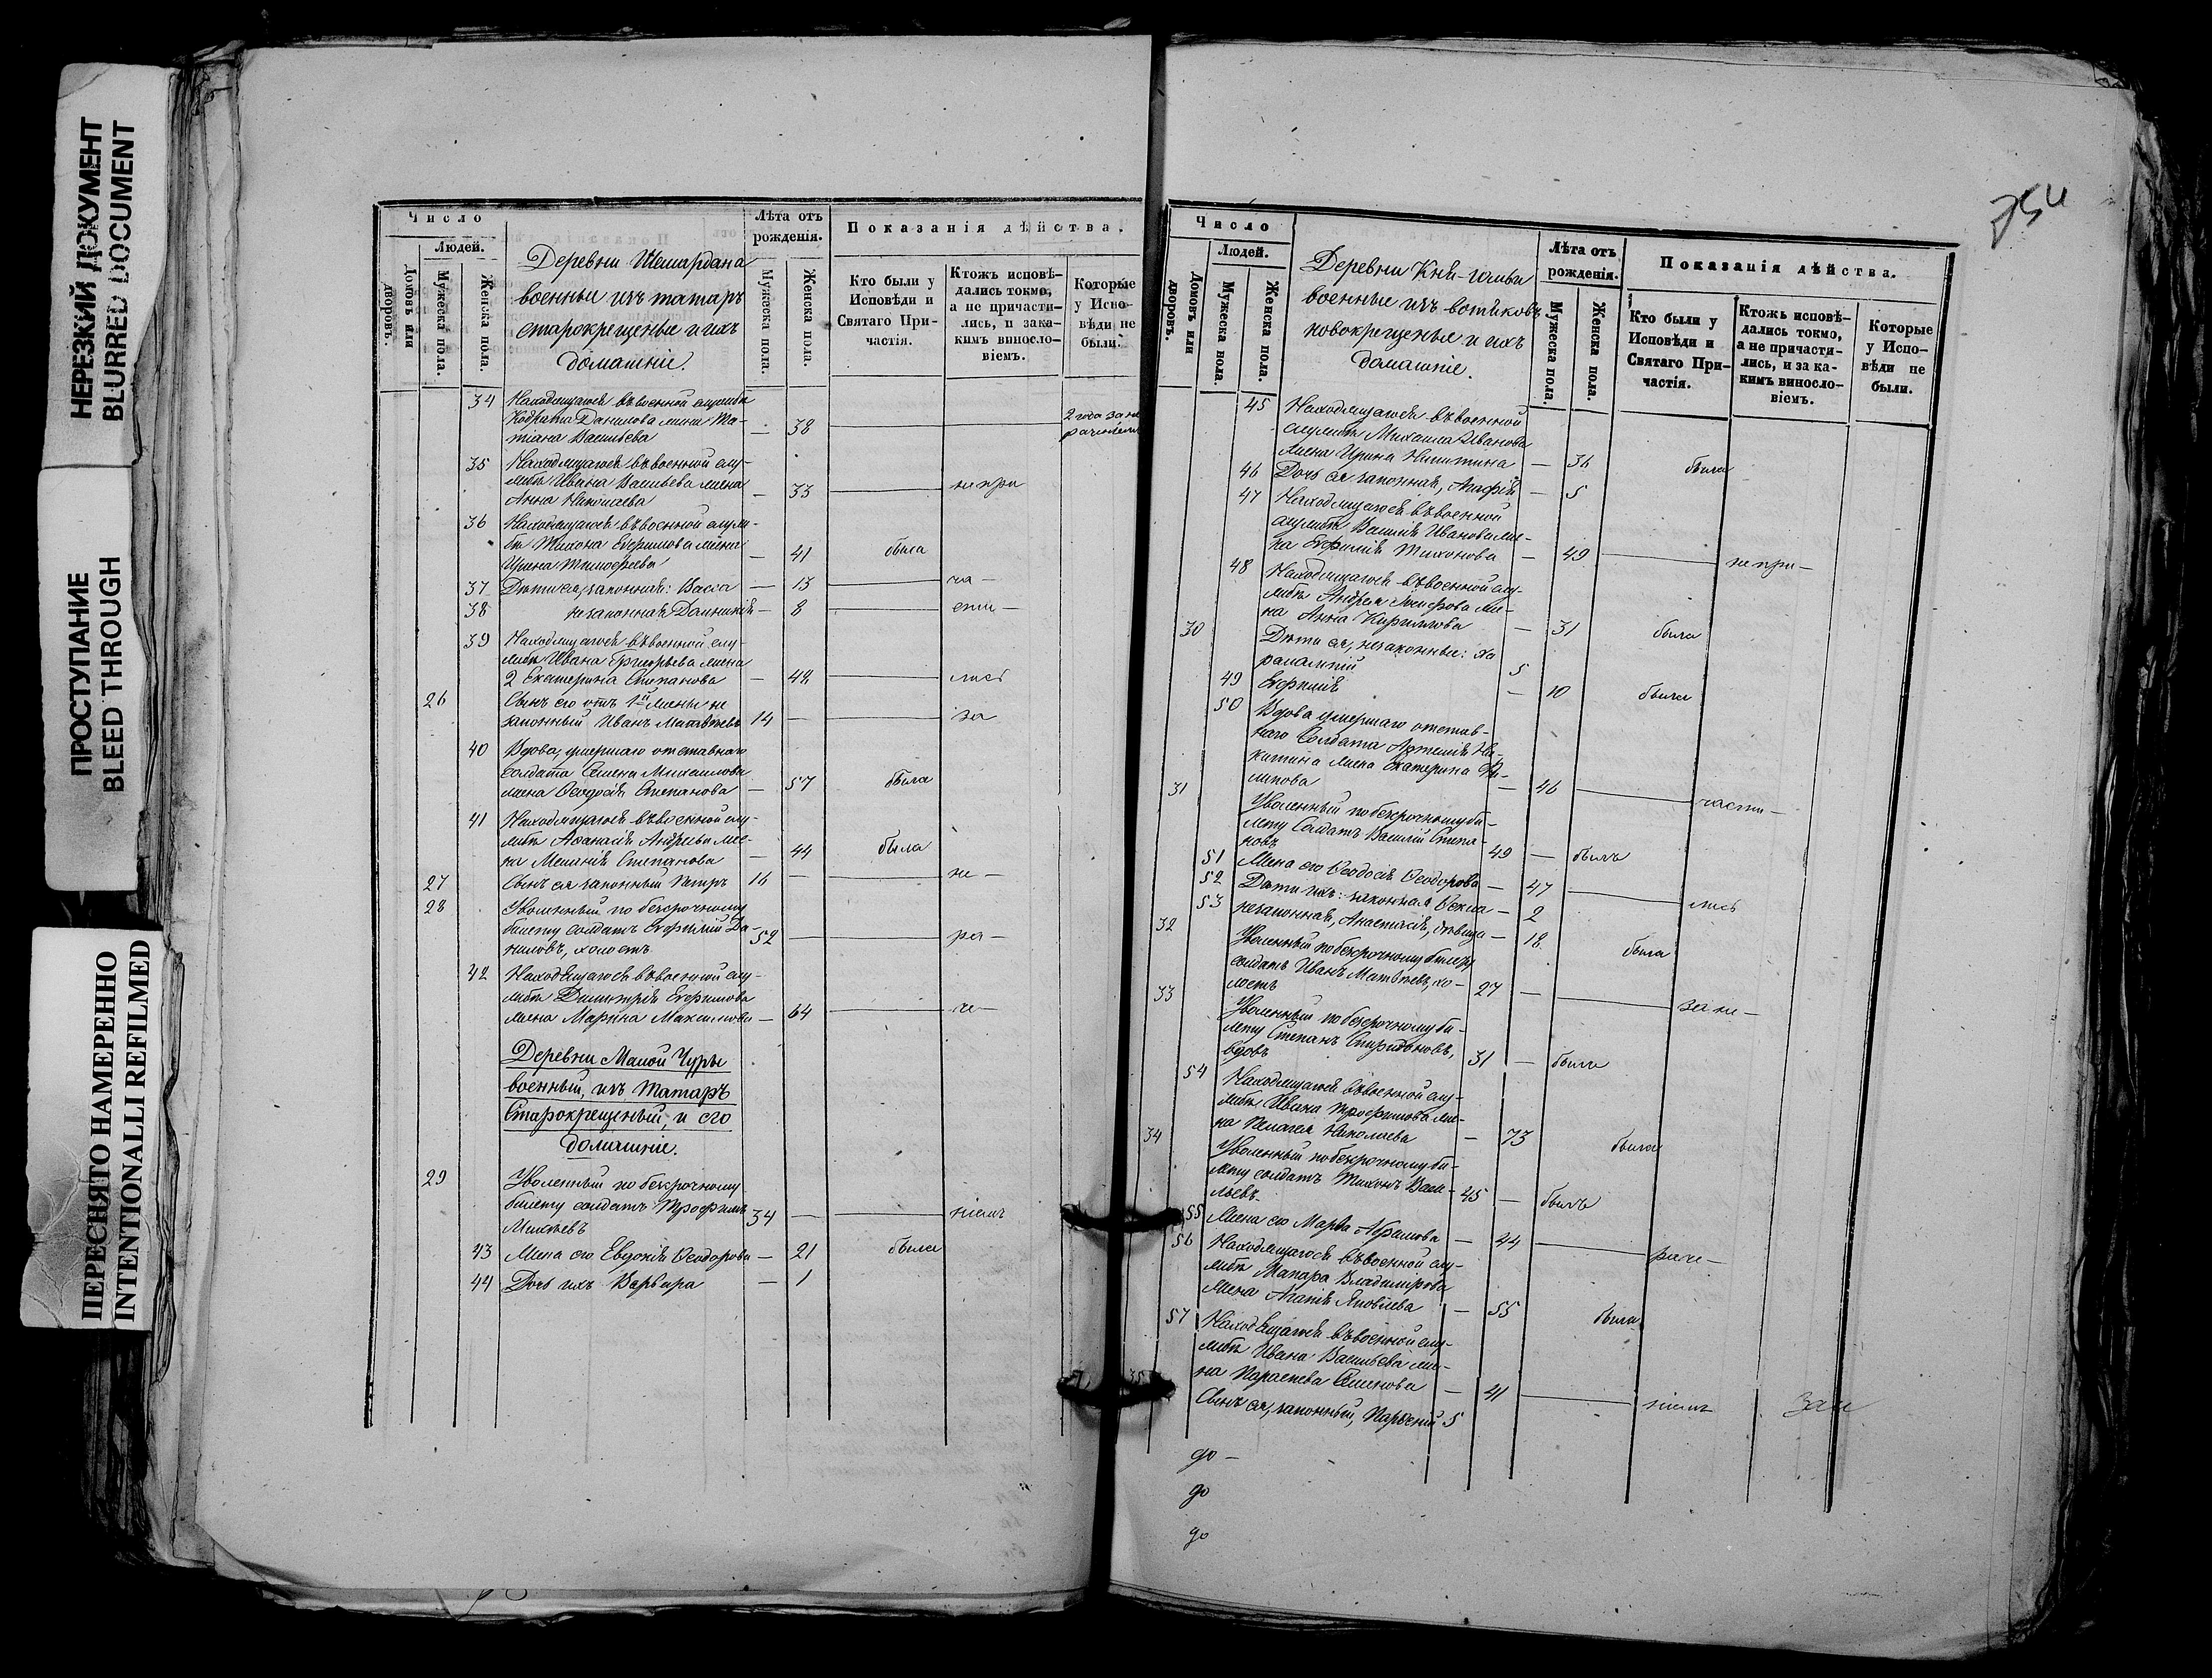 НЕРЕЗКИЙ ДОКУМЕНТ
BLURRED DOCUMENT
ПРОСТУПАНИЕ
BLEED THROUGH
ПЕРЕСНЯТО НАМЕРЕННО
INTENTIONALLI REFILMED
Число
Людей.
Домовъ или дворовъ.
Мужеска пола.
Женска пола.
Деревни Шемардана
военные изъ татаръ
старокрещеные и ихъ
домашніе.
Лѣта отъ рожденія.
Мужеска пола.
Женска пола.
Показанія дѣйства.
Кто были у Исповѣди и Святаго Причастія.
Ктожъ исповѣдались токмо, а не причастились, и закакимъ винословіемъ.
Которые у Исповѣди не были.
34 Находящагося въ военной службѣ
Кодрата Данилова жена Та-
тіана Васильева — 38 2 года за не
35 Находящагося въ военной слу-
жбѣ Ивана Васильева жена
Анна Николаева — 33 не при
36 Находящагося въ военной служ-
бѣ Тихона Ефимова жена
Ирина Тимофеева — 41 была
37 Дѣти ея, законная: Васса — 13 ча —
38 незаконная Домникія — 8 сти —
39 Находящагося въ военной слу-
жбѣ Ивана Григорьева жена
2 Екатерина Степанова — 42 лись
26 Сынъ его отъ 1й жены не
законный Иванъ Матвѣевъ 14 — за
40 Вдова, умершаго отставнаго
солдата Семена Михаилова
жена Ѳеодосія Степанова — 57 была
41 Находящагося въ военной слу-
жбѣ Аѳанасія Андреева же-
на Меланія Степанова — 44 была
27 Сынъ ея законный Петръ 16 — не —
28 Уволенный по безсрочному
билету солдатъ Ефимій Да-
ниловъ, холостъ 52 — ра —
42 Находящагося въ военной слу-
жбѣ Димитрія Ефимова
жена Марина Максимова — 64 че —
Деревни Малой Чуры
военный, изъ татаръ
Старокрещеный, и его
домашніе.
29 Уволенный по безсрочному
билету солдатъ Трофимъ
Михѣевъ 34 — ніемъ
43 Жена его Евдокія Ѳеодорова — 21 была
44 Дочь ихъ Варвара — 1
Число
Людей.
Домовъ или дворовъ.
Мужеска пола.
Женска пола.
военные изъ вотяковъ
новокрещеные и ихъ
домашніе.
Лѣта отъ рожденія.
Мужеска пола.
Женска пола.
Показанія дѣйства.
Кто были у Исповѣди и Святаго Причастія.
Ктожъ исповѣдались токмо, а не причастились, и за какимъ винословіемъ.
Которые у Исповѣди не были.
45 Находящагося въ военной
службѣ Михаила Иванова
жена Ирина Никитина — 36 была
46 Дочь ея законная, Агафія — 5
47 Находящагося въ военной
службѣ Василія Иванова же-
на Евфимія Тихонова — 49 не при —
48 Находящагося въ военной слу-
жбѣ Андрея Іосифова же-
на Анна Кириллова — 31 была
30 Дѣти ея, незаконные: Ха
ралампій 5
49 Евфимія — 10 была
50 Вдова умершаго отстав-
наго Солдата Артемія Ни-
китина жена Екатерина Фи-
липова — 46 части —
31 Уволенный по безсрочному би-
лету Солдатъ Василій Степа-
новъ 49 — былъ
51 Жена его Ѳеодосія Ѳеодорова — 47 лись
52 Дѣти ихъ: законная Ѳекла — 2
53 незаконная, Анастасія, дѣвица — 18 была
32 Уволенный по безсрочному билету
солдатъ Иванъ Матвѣевъ, хо-
лостъ 27 — за не —
33 Уволенный по безсрочному би-
лету Степанъ Спиридоновъ,
вдовъ 31 — былъ
54 Находящагося въ военной слу-
жбѣ Ивана Трофимова же-
на Пелагея Николаева — 73 была
34 Уволенный по безсрочному би-
лету солдатъ Тихонъ Васи-
льевъ 45 — былъ
55 Жена его Марѳа Абрамова — 44 раче —
56 Находящагося въ военной слу-
жбѣ Макара Владимірова
жена Агапія Яковлева — 55 была
57 Находящагося въ военной слу-
жбѣ Ивана Васильева же-
на Параскева Семенова — 41 ніемъ
35 Сынъ ея, законный, Парѳеній 5
до —
до
до